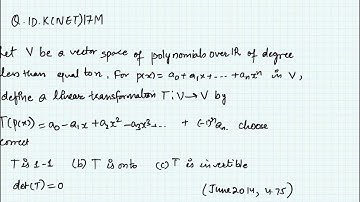 Q. ID.K(NET)17M
Let V be a vector space of polynomials over IR of degree
less than equal to n. For p(x) = a₀ + a₁x + ... + aₙxⁿ in V,
define a linear transformation T: V → V by
T(p(x)) = a₀ - a₁x + a₂x² - a₃x³ - ... + (-1)ⁿaₙ. choose
correct
T is 1-1 (b) T is onto (c) T is invertible
det(T) = 0
(June 2014, 4.75)